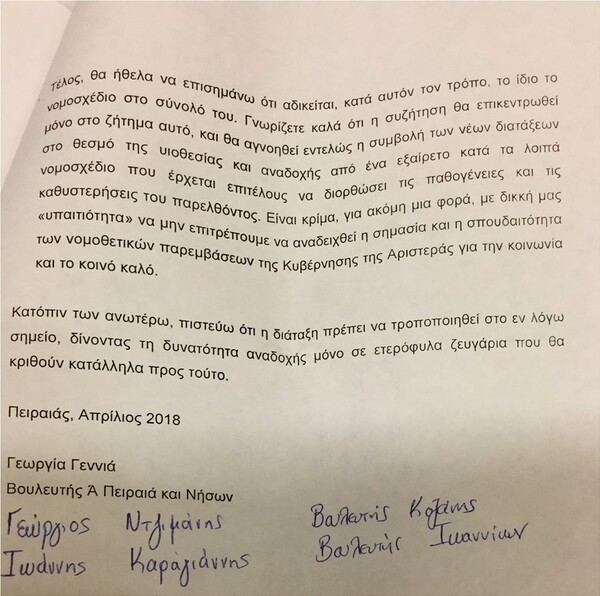 τέλος, θα ήθελα να επισημάνω ότι αδικείται, κατά αυτόν τον τρόπο, το ίδιο το
νομοσχέδιο στο σύνολό του. Γνωρίζετε καλά ότι η συζήτηση θα επικεντρωθεί
μόνο στο ζήτημα αυτό, και θα αγνοηθεί εντελώς η συμβολή των νέων διατάξεων
στο θεσμό της υιοθεσίας και αναδοχής από ένα εξαίρετο κατά τα λοιπά
νομοσχέδιο που έρχεται επιτέλους να διορθώσει τις παθογένειες και τις
καθυστερήσεις του παρελθόντος. Είναι κρίμα, για ακόμη μια φορά, με δικκή μας
«υπαιτιότητα» να μην επιτρέπουμε να αναδειχθεί η σημασία και η σπουδαιότητα
των νομοθετικών παρεμβάσεων της Κυβέρνησης της Αριστεράς για την κοινωνία
και το κοινό καλό.
Κατόπιν των ανωτέρω, πιστεύω ότι η διάταξη πρέπει να τροποποιηθεί στο εν λόγω
σημείο, δίνοντας τη δυνατότητα αναδοχής μόνο σε ετερόφυλα ζευγάρια που θα
κριθούν κατάλληλα προς τούτο.
Πειραιάς, Απρίλιος 2018
Γεωργία Γεννιά
Βουλευτής Ά Πειραιά και Νήσων
Γεώργιος Ντζιμάνης Βουλευτής Κοζάνης
Ιωάννης Καραγιάννης Βουλευτής Ιωαννίνων